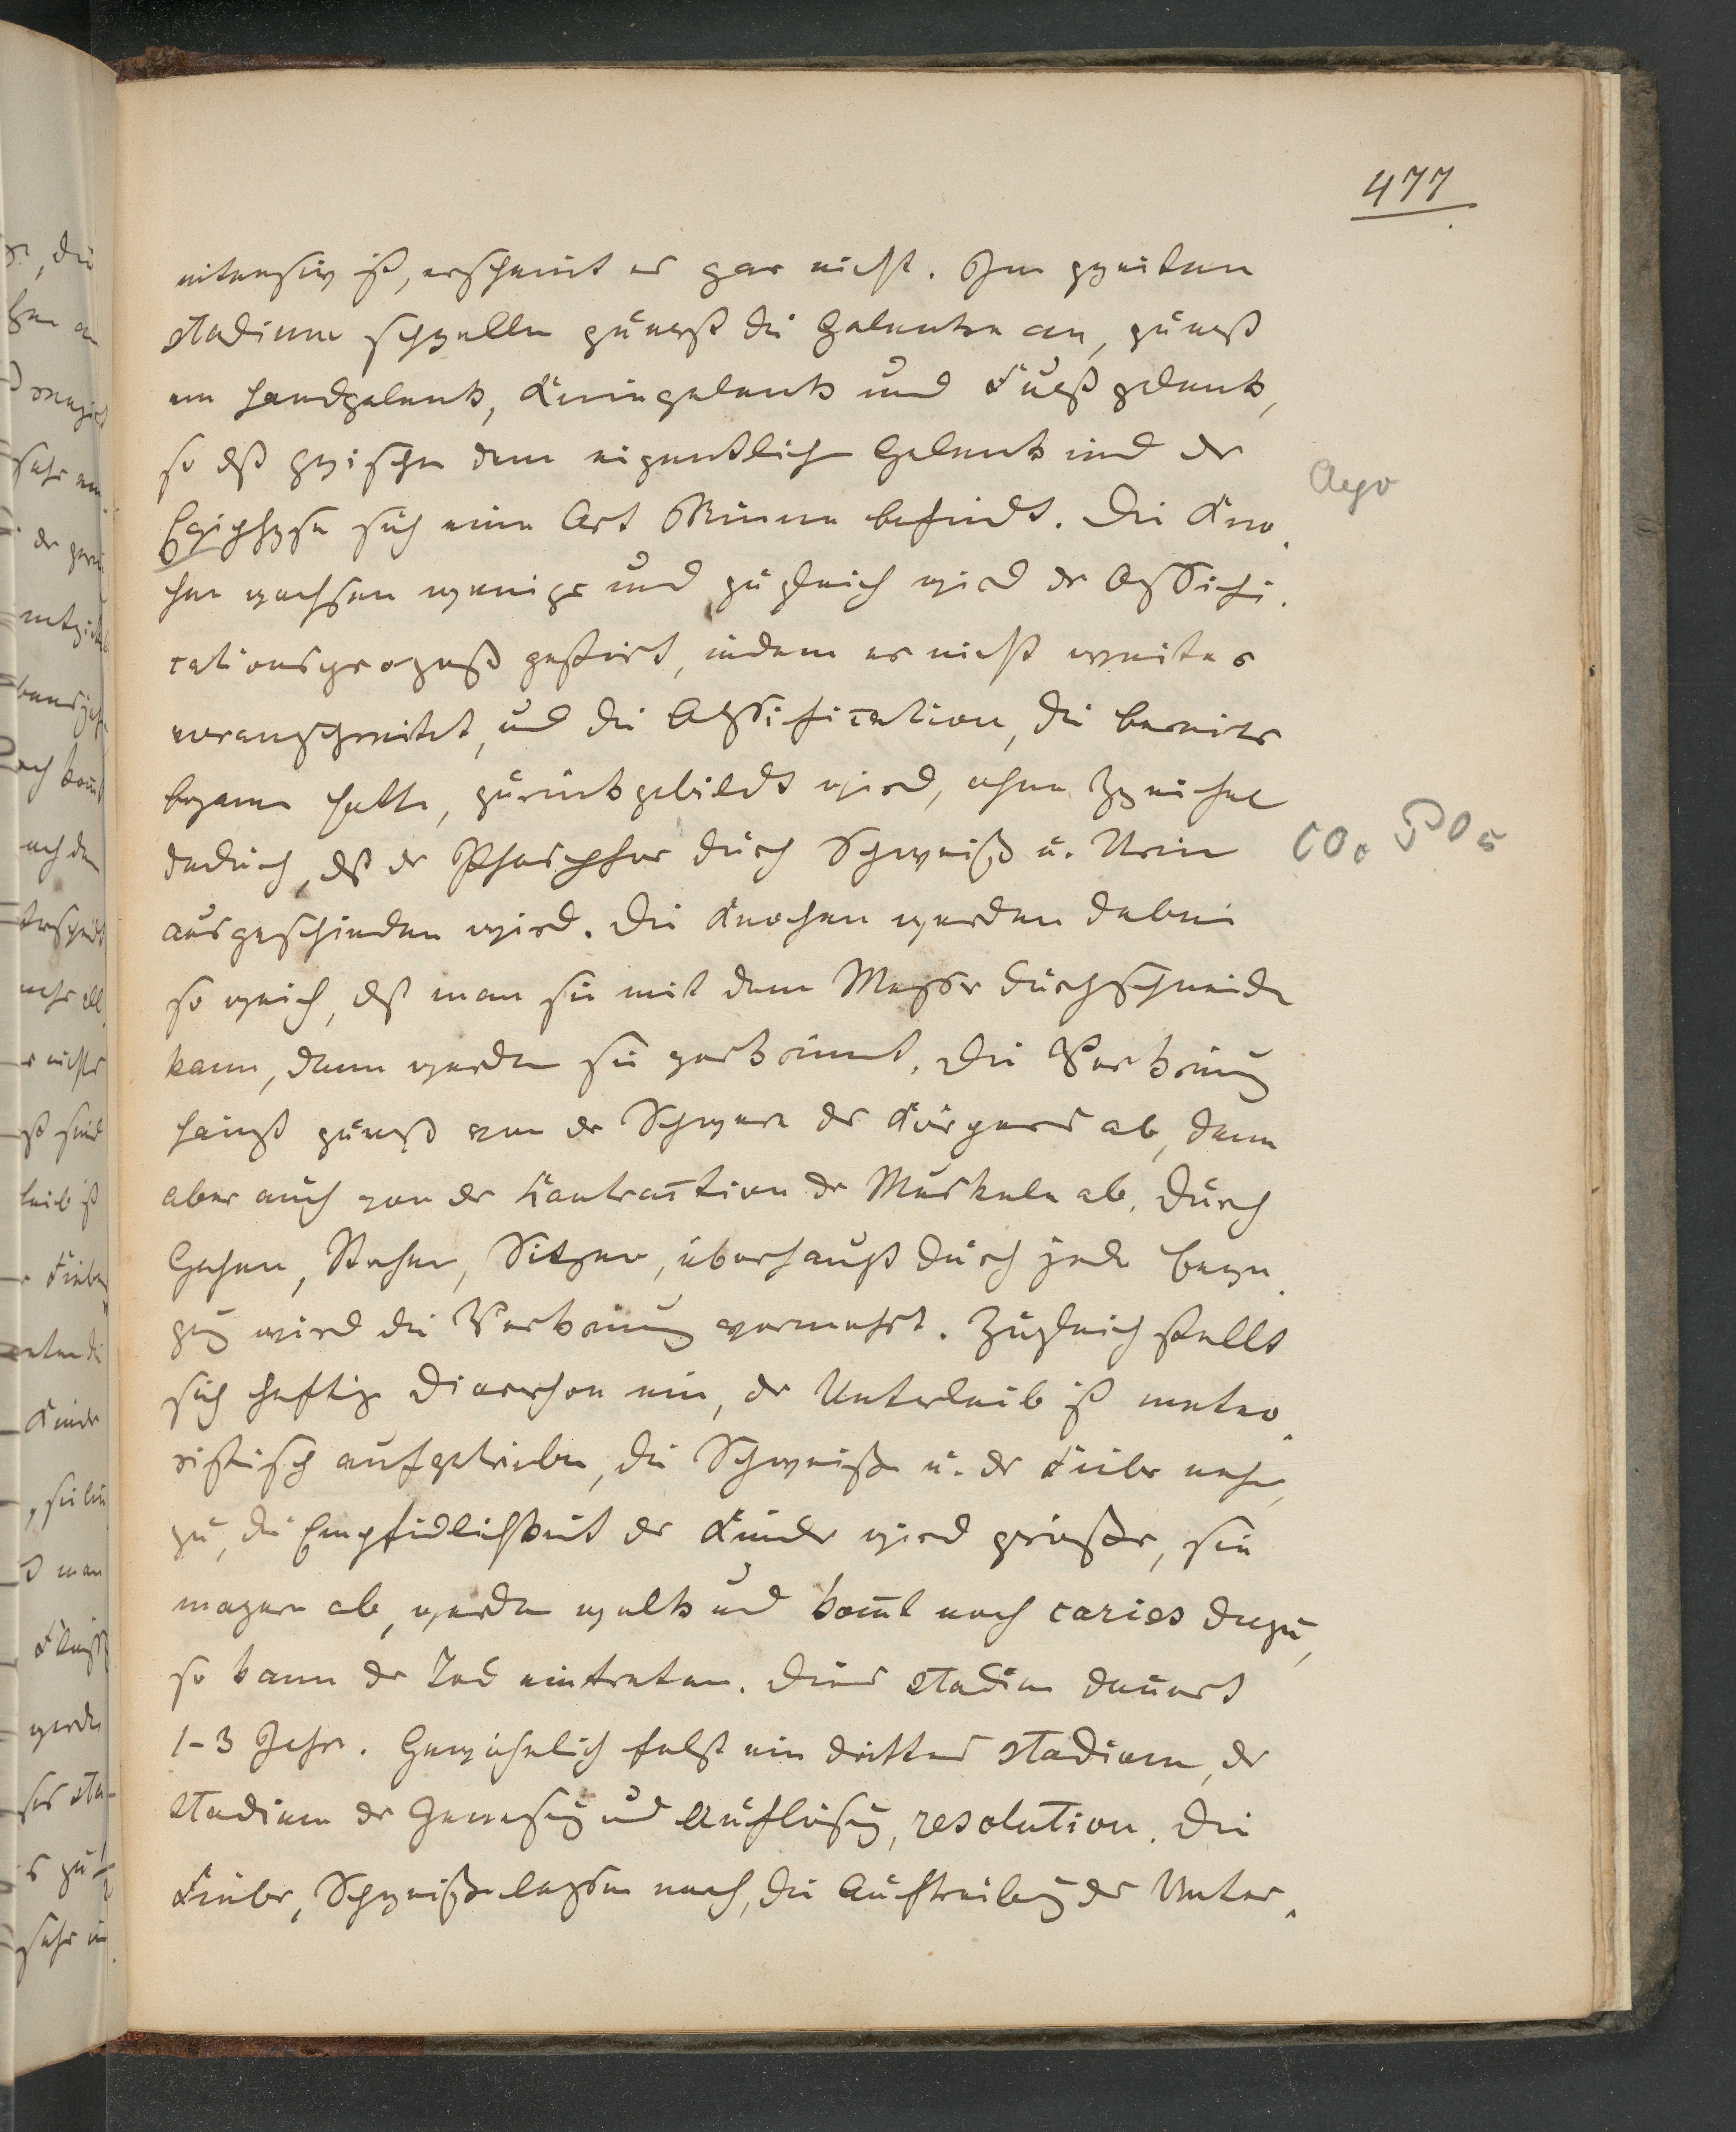 477
intensiv ist, erscheint er gar nicht. Im zweiten
Stadium schwellen zuerst die Gelenke an, zuerst
am Handgelenk, Kniegelenk und Fußgelenk,
so dß zwischen dem eigentlichen Gelenk und der
Epiphyse sich eine Art Rinne befindet. Die Kno
chen wachsen weniger und zugleich wird der Ossifi
cationsprozeß gestört, indem er nicht weiter
voranschreitet, und die Ossification, die bereits
begonnen hatte, zurückgebildet wird, ohne Zweifel
CO2 PO5
dadurch, dß der Phosphor durch Schweiß u. Urin
ausgeschieden wird. Die Knochen werden dabei
so weich, dß man sie mit dem Messer durchschneiden
kann, dann werden sie verkrümmt. Die Verkrümmung
hängt zuerst von der Schwere des Körpers ab, dann
aber auch von der Contraction der Muskeln ab. Durch
Gehen, Stehen, Sitzen, überhaupt durch jede Bewe
gung wird die Verkrümmung vermehrt. Zugleich stellt
sich heftige Diarrhoe ein, der Unterleib ist meteo
ristisch aufgetrieben, die Schweiße u. das Fieber nehmen
zu, die Empfindlichkeit der Kinder wird größer, sie
magern ab, werden welk und kommt noch caries dazu,
so kann der Tod eintreten. Dieses Stadium dauert
1-3 Jahre. Gewöhnlich folgt ein drittes Stadium, das
Stadium der Genesung und Auflösung, resolution. Die
Fieber, Schweiße lassen nach, die Auftreibung des Unter